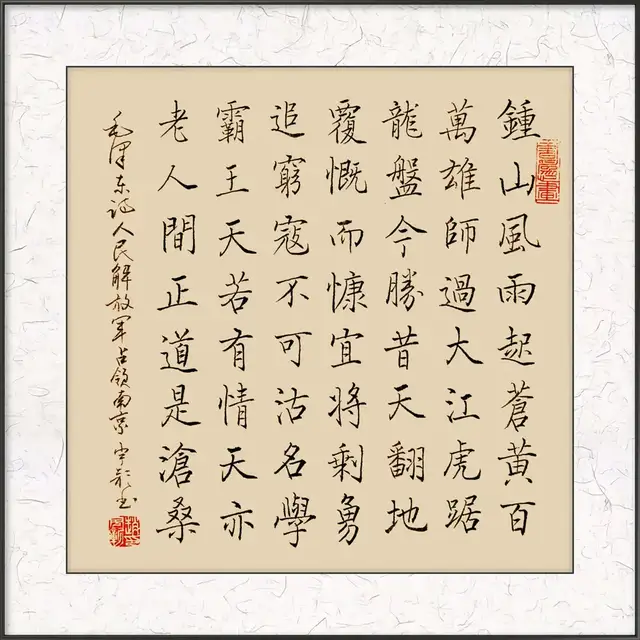 鍾山風雨起蒼黃百
萬雄師過大江虎踞
龍盤今勝昔天翻地
覆慨而慷宜將剩勇
追窮寇不可沽名學
霸王天若有情天亦
老人間正道是滄桑
毛泽东人民解放軍占領南京书